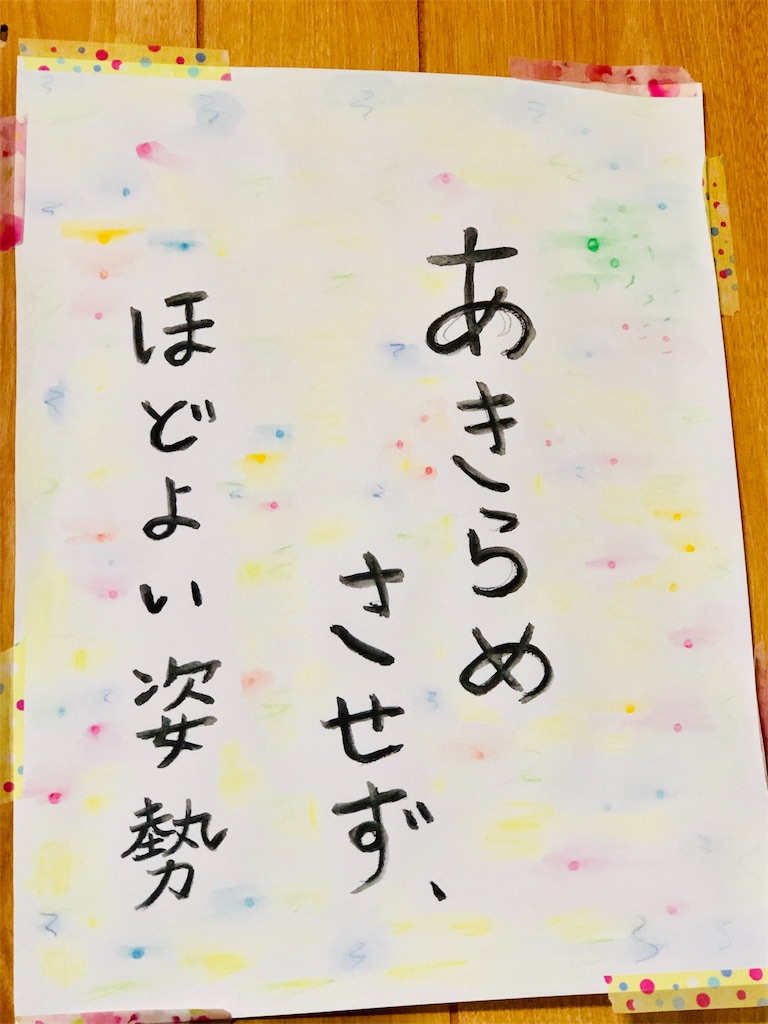 あきらめ
させず、
ほどよい姿勢